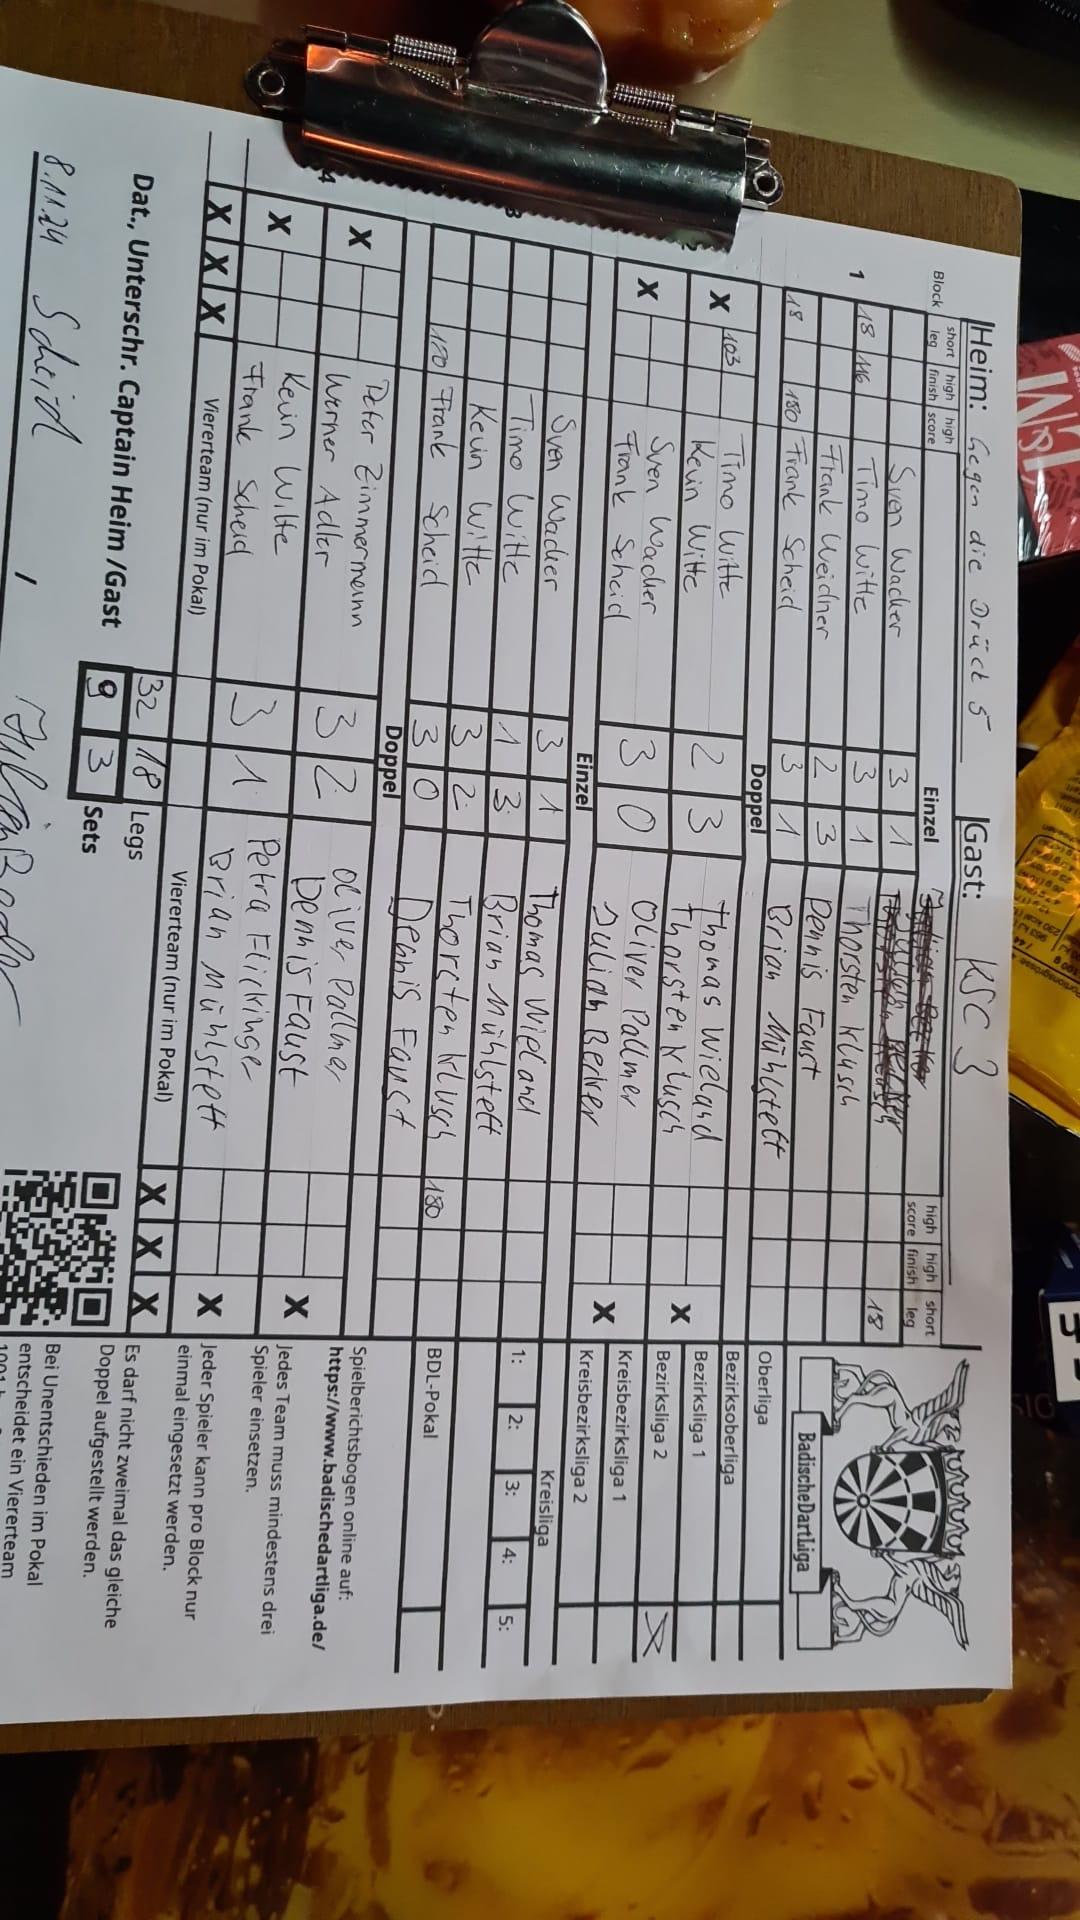 Heim: Gegen die Drück 5 Gast: KSC 3
Block short leg high finish high score Einzel high score high finish short leg
Sven Wacker 3 1
1 18 116 Timo Witte 3 1 Thorsten Klusch 18
Frank Weidner 2 3 Dennis Faust
18 180 Frank Scheid 3 1 Brian Mühlstett
Doppel
X 103 Timo Witte 2 3 Thomas Wieland
Kevin Witte Thorsten Klusch X
X Sven Wacker 3 0 Oliver Pallmer
Frank Scheid Julian Becker X
Einzel
3 Sven Wacker 3 1 Thomas Wieland
Timo Witte 1 3 Brian Mühlstett
Kevin Witte 3 2 Thorsten Klusch 180
180 Frank Scheid 3 0 Dennis Faust
Doppel
4 X Peter Zimmermann 3 2 Oliver Pallmer
Werner Adler Dennis Faust X
X Kevin Witte 3 1 Petra Flickinger
Frank Scheid Brian Mühlstett X
X X X Viererteam (nur im Pokal) Viererteam (nur im Pokal) X X X
32 18 Legs
Dat., Unterschr. Captain Heim /Gast 9 3 Sets
8.11.24 Scheid
BadischeDartLiga
Oberliga
Bezirksoberliga
Bezirksliga 1
Bezirksliga 2 X
Kreisbezirksliga 1
Kreisbezirksliga 2
Kreisliga
1: 2: 3: 4: 5:
BDL-Pokal
Spielberichtsbogen online auf:
https://www.badischedartliga.de/
Jedes Team muss mindestens drei
Spieler einsetzen.
Jeder Spieler kann pro Block nur
einmal eingesetzt werden.
Es darf nicht zweimal das gleiche
Doppel aufgestellt werden.
Bei Unentschieden im Pokal
entscheidet ein Viererteam